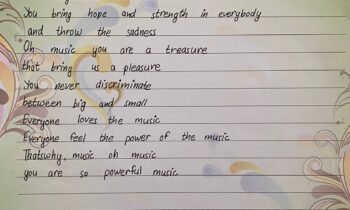 You bring hope and strength in everybody
and throw the sadness
Oh music you are a treasure
that bring us a pleasure
You never discriminate
between big and small
Everyone loves the music
Everyone feel the power of the music
Thatswhy, music oh music
you are so powerful music